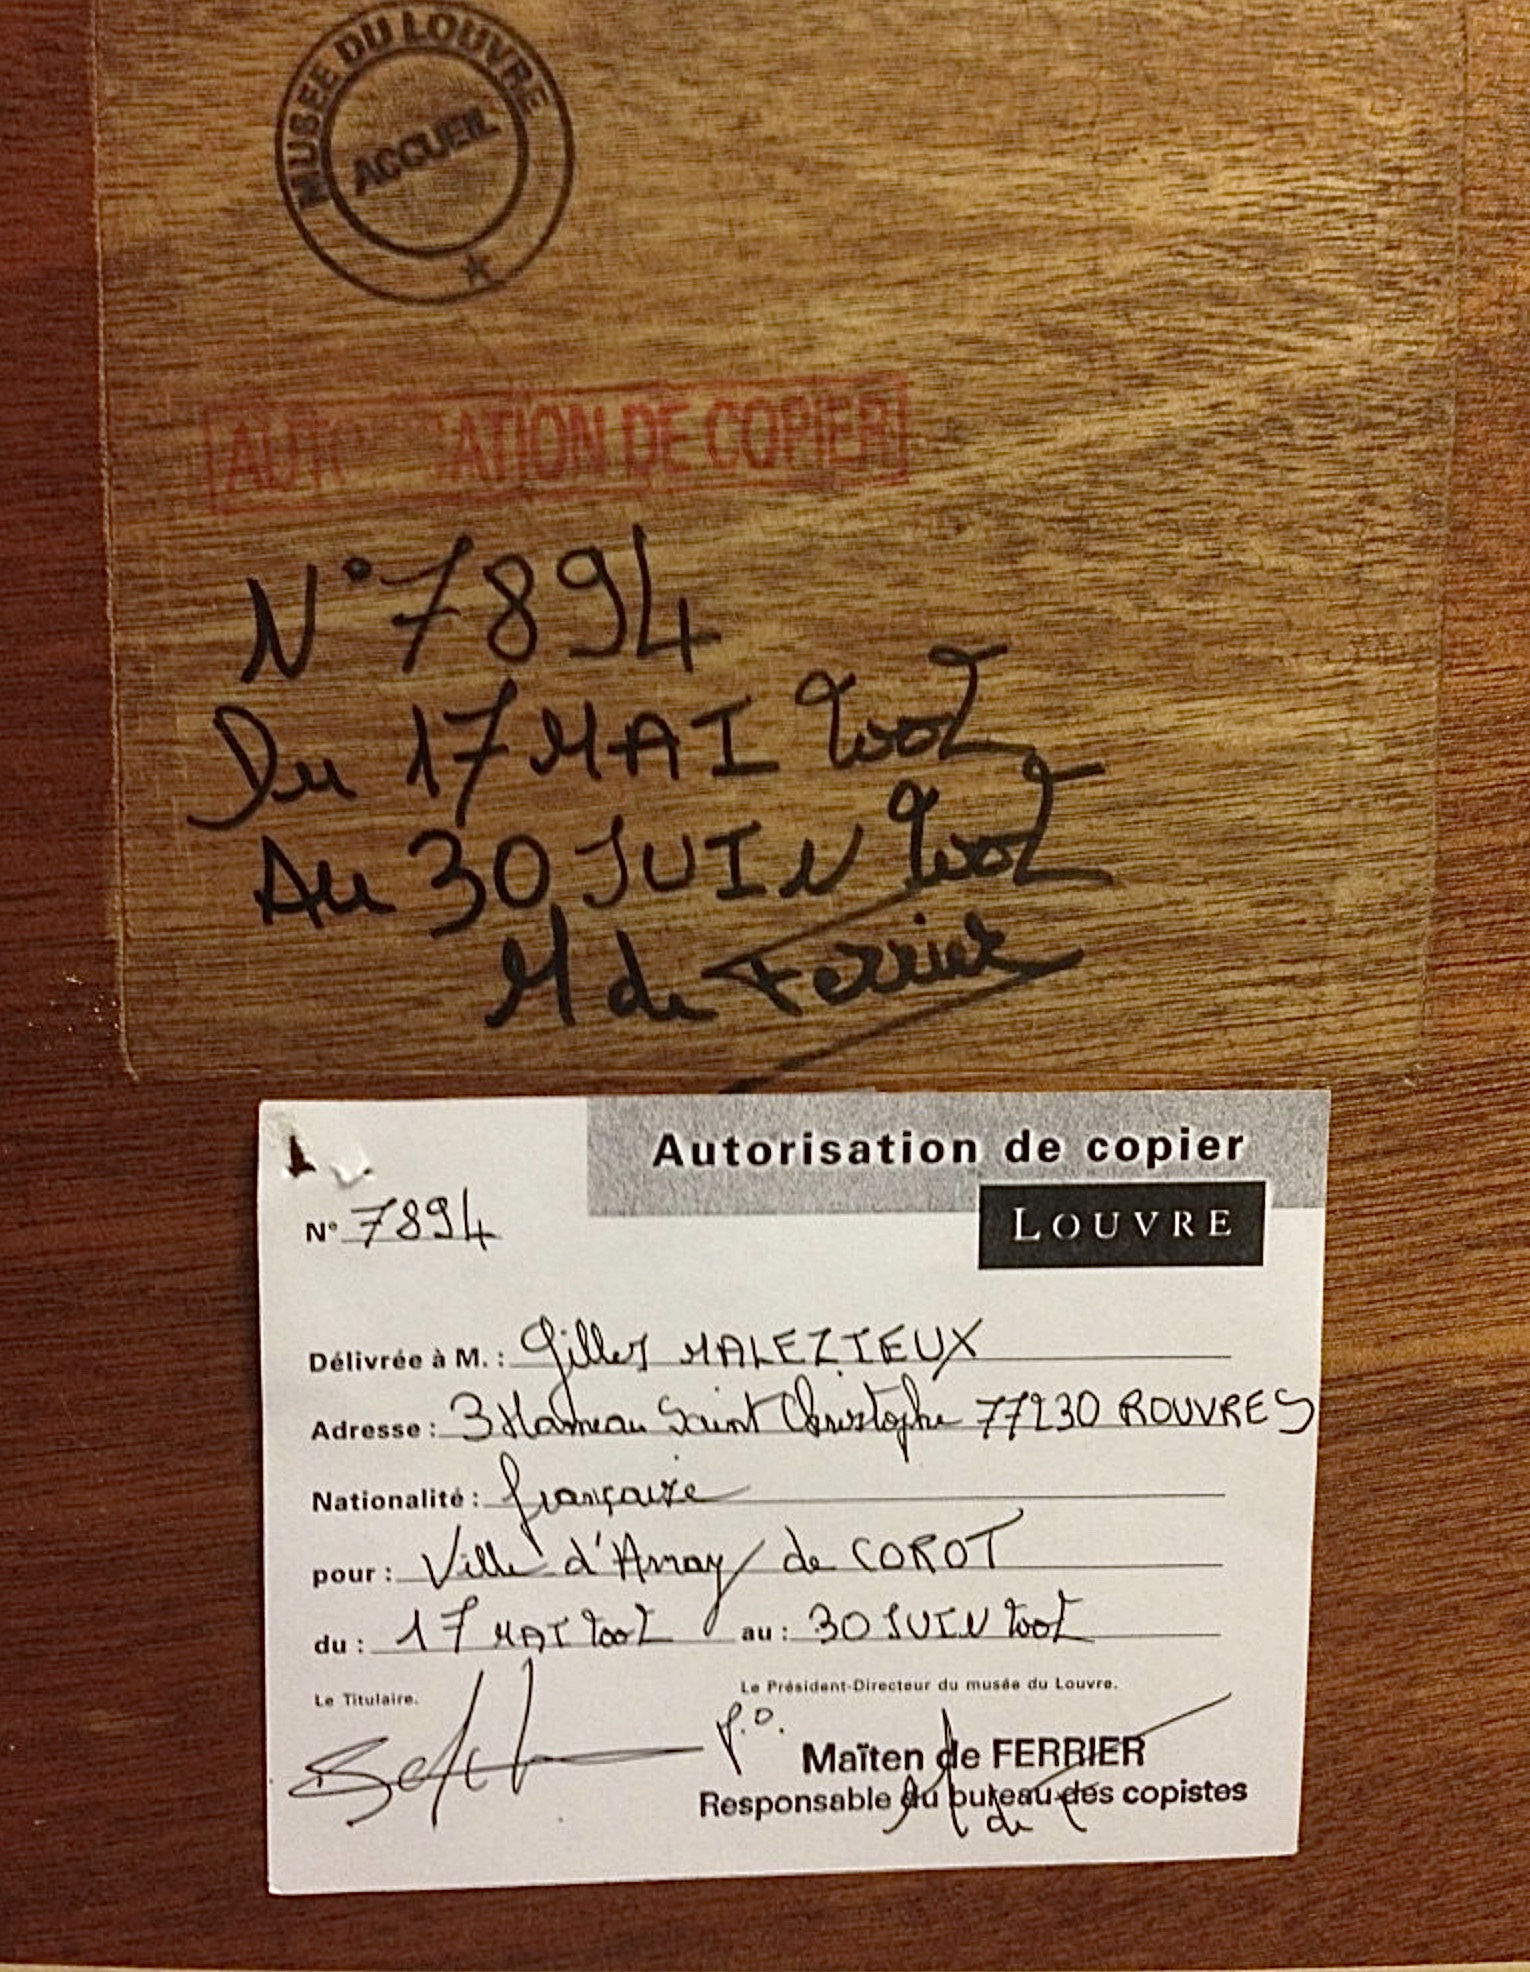 MUSEE DU LOUVRE
ACCUEIL
AUTO ATION DE COPIER
N° 7894
Du 17 MAI 2002
Au 30 JUIN 2002
M de Ferrier
Autorisation de copier
LOUVRE
N° 7894
Délivrée à M. : Gilles MALEZIEUX
Adresse : 3 Hameau Saint Christophe 77230 ROUVRES
Nationalité : française
pour : Ville d'Avray de COROT
du : 17 MAI 2002 au : 30 JUIN 2002
Le Titulaire. Le Président-Directeur du musée du Louvre.
P.O.
Maïten de FERRIER
Responsable du bureau des copistes